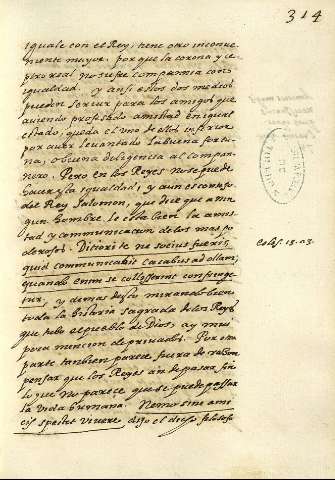 314
iguale con el Rey, tiene otro inconue
niente mayor, porque la corona y ce
ptro real no sufre compannia con
igualdad. y ansi estos dos medios
pueden seruir para los amigos que
auiendo profesado amistad en igual
estado, queda el vno de ellos inferior
por auer leuantado la buena fortu
na, o buena deligencia al compan
nero. Pero en los Reyes no se puede
hacer la igualdad, y aun es consejo
del Rey Salomon, que dice que a nin
gun hombre le esta bien la amis
tad y communicacion de los mas po
derosos. Ditiori te ne socius fueris,
quid communicabit cacabus ad ollam,
quando enim se collisserint confringe
tur, y demas desto mirando bien
toda la historia sagrada de los Reyes
que tubo el pueblo de Dios, ay mui
poca mencion de priuados. Por otra
parte tanbien parece fuera de raçon
pensar que los Reyes an de pasar sin
lo que no parece que se puede passar
la vida humana. Nemo sine ami
cis spectet viuere dijo el philosofo
Ecles. 13. n3.